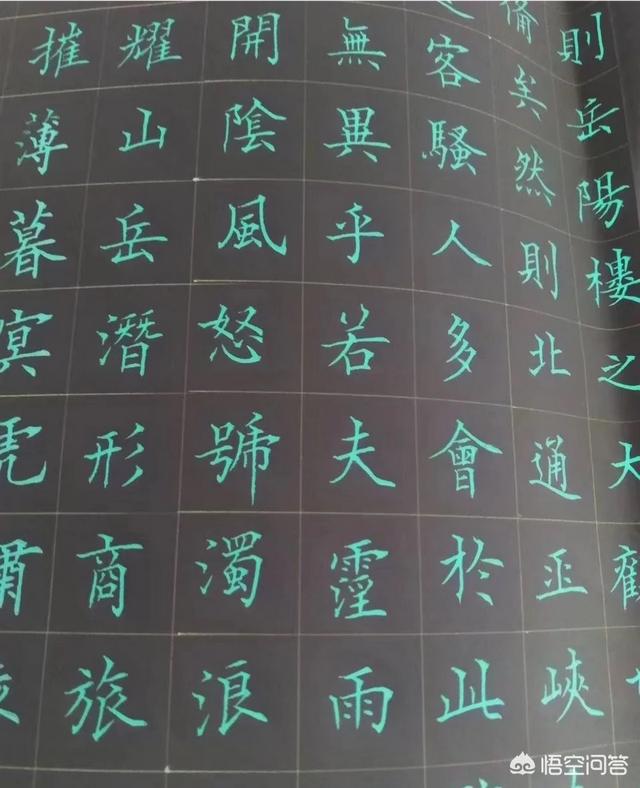 則岳陽樓之大觀
備矣然則北通巫峽
客騷人多會於此
無異乎若夫霪雨
開陰風怒號濁浪
耀山岳潛形商旅
摧薄暮冥虎嘯
悟空问答